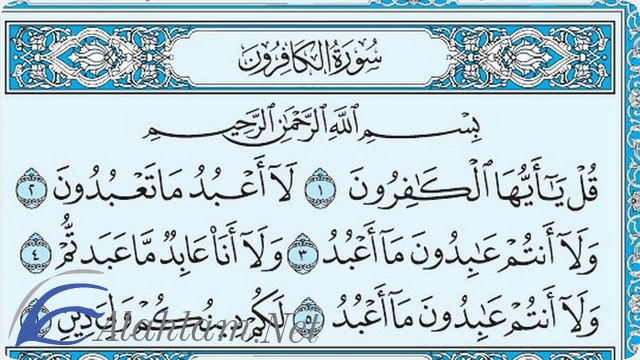 سُورَةُ الكَافِرُونَ
بِسْمِ اللَّهِ الرَّحْمَٰنِ الرَّحِيمِ
قُلْ يَٰٓأَيُّهَا ٱلْكَٰفِرُونَ ١ لَآ أَعْبُدُ مَا تَعْبُدُونَ ٢
وَلَآ أَنتُمْ عَٰبِدُونَ مَآ أَعْبُدُ ٣ وَلَآ أَنَا۠ عَابِدٌ مَّا عَبَدتُّمْ ٤
وَلَآ أَنتُمْ عَٰبِدُونَ مَآ أَعْبُدُ ٥ لَكُمْ دِينُكُمْ وَلِىَ دِينِ
Alahlam.Net